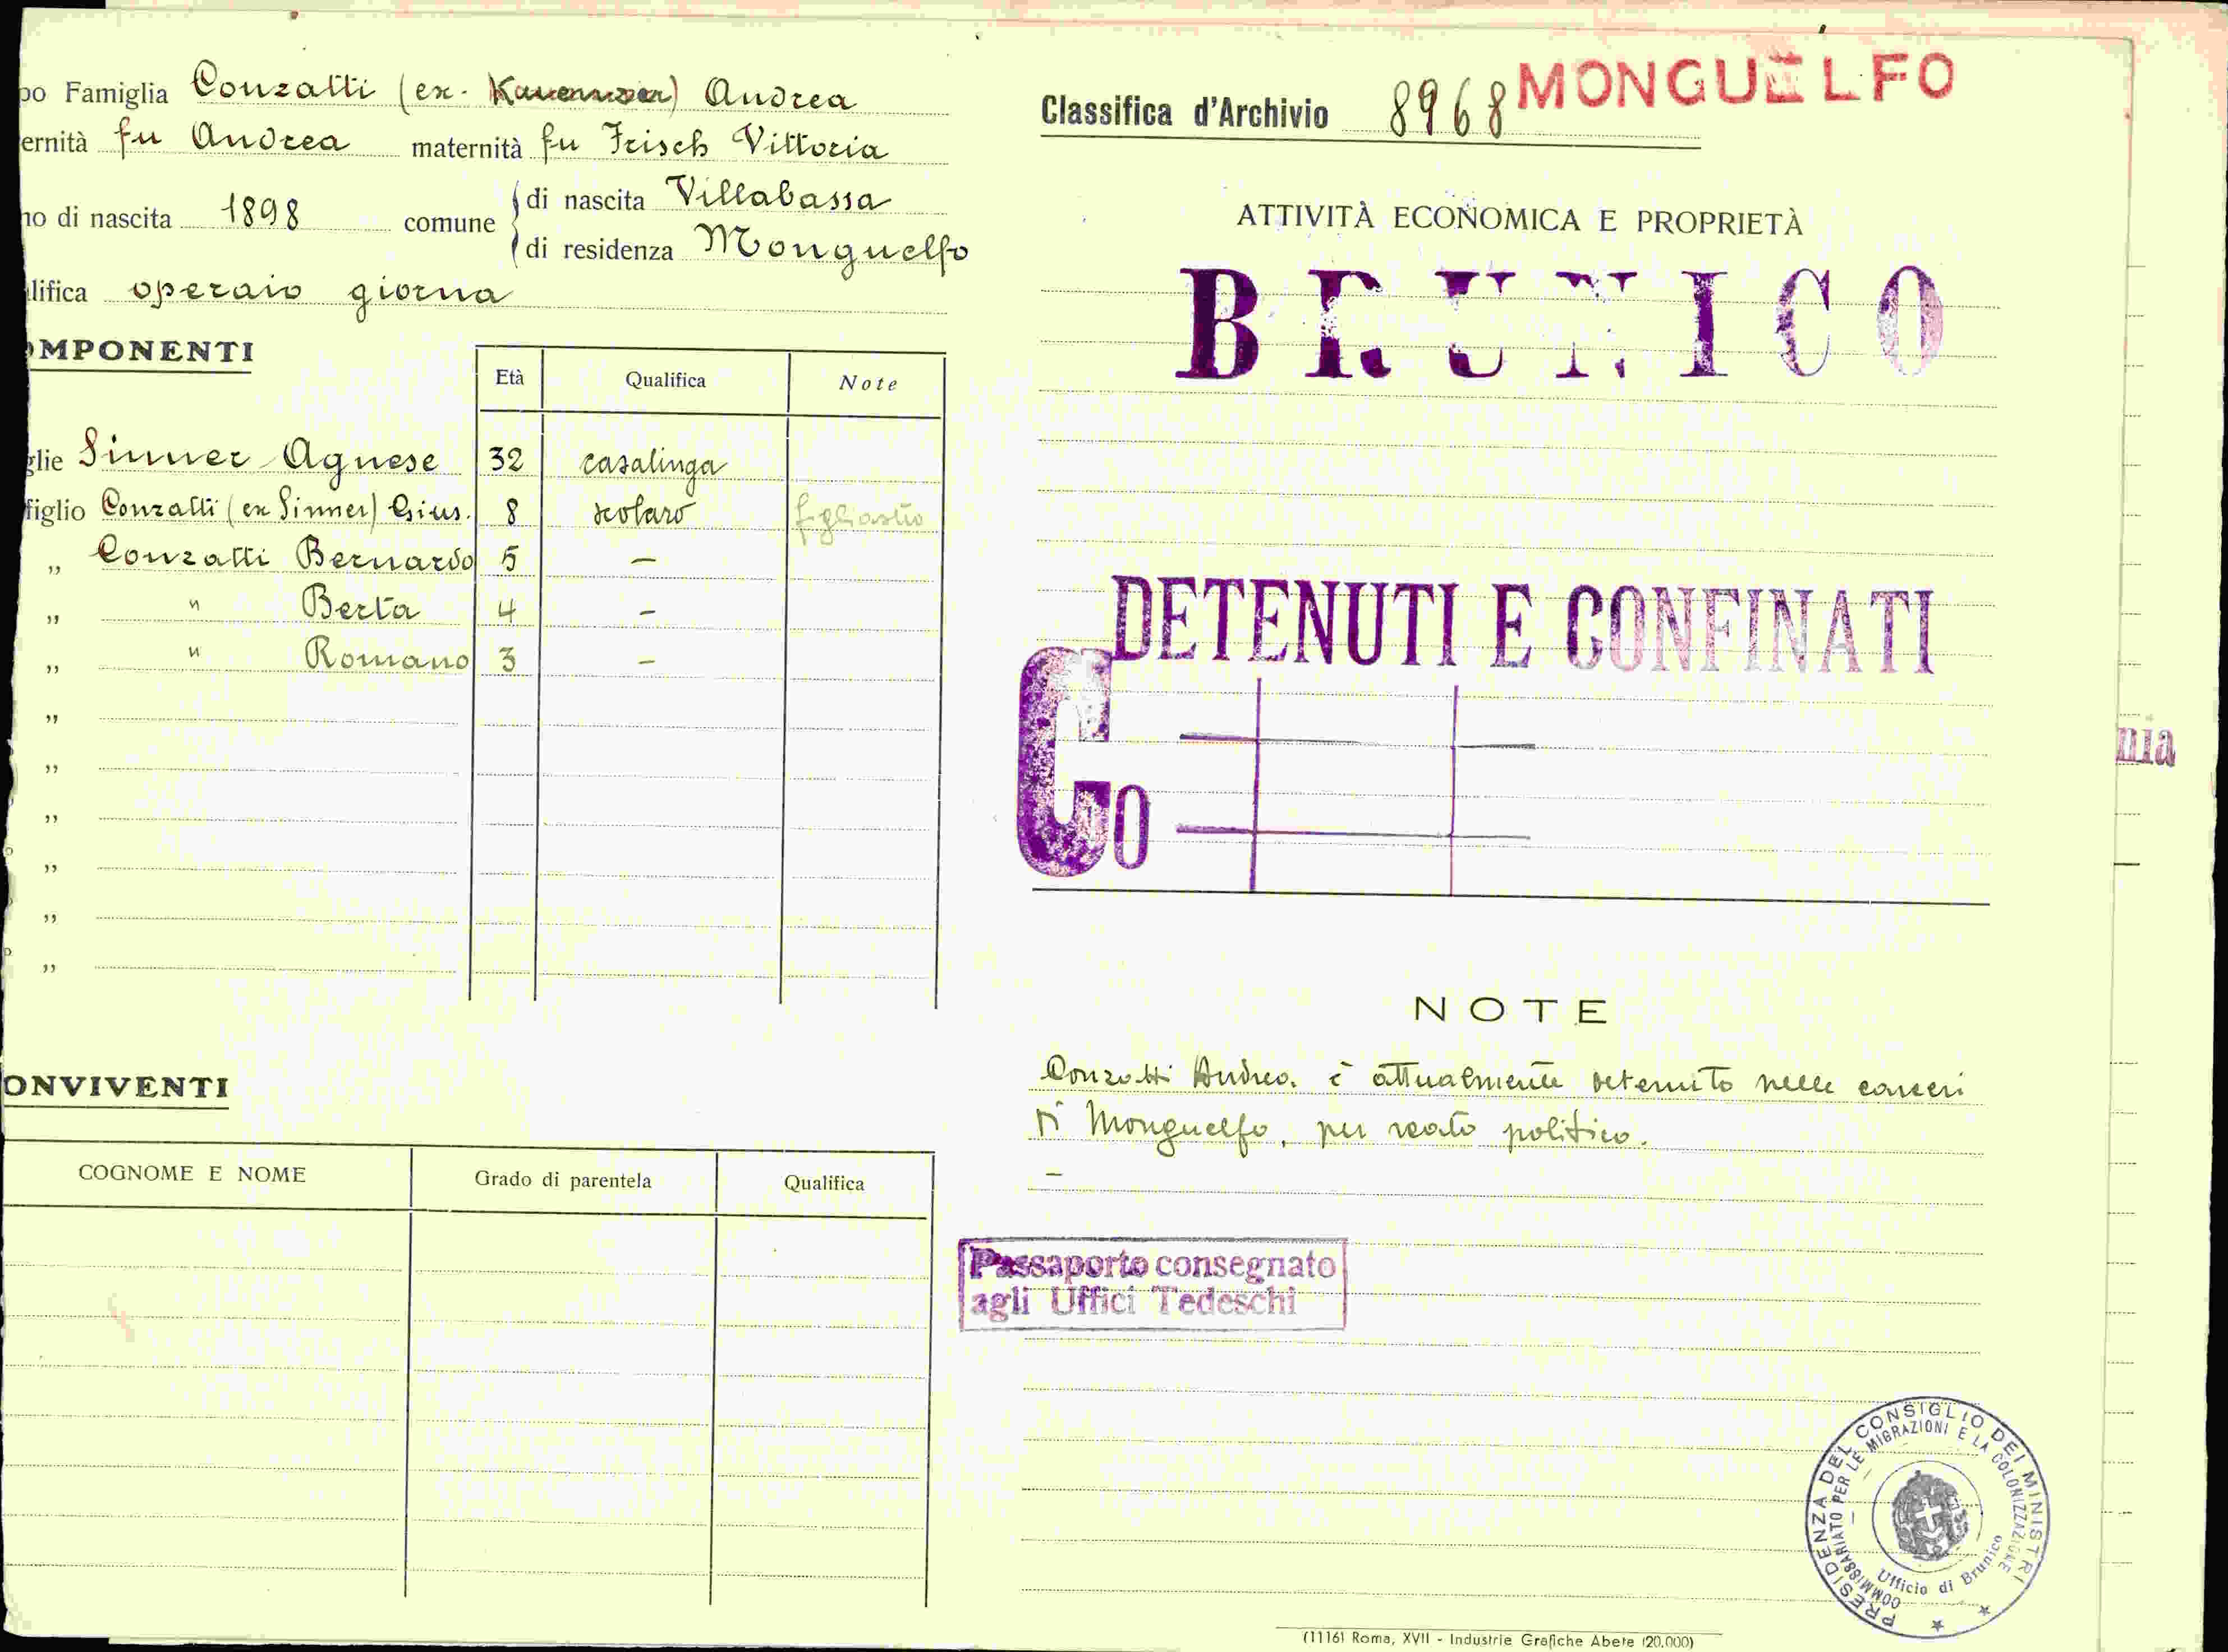 po Famiglia Conzatti (ex- Andrea
ernità fu Andrea maternità fu Frisch Vittoria
no di nascita 1898 comune di nascita Villabassa
di residenza Monguelfo
lifica operaio giorna
OMPONENTI
Età Qualifica Note
glie Sinner Agnese 32 casalinga
figlio Conzatti (ex Sinner) Gius. 8 scolaro figliastro
„ Conzatti Bernardo 5 –
„ " Berta 4 –
„ " Romano 3 –
„
„
„
„
„
„
ONVIVENTI
COGNOME E NOME Grado di parentela Qualifica
Classifica d'Archivio 8968 MONGUELFO
ATTIVITÀ ECONOMICA E PROPRIETÀ
BRUNICO
DETENUTI E CONFINATI
Co
nia
NOTE
Conzatti Andrea è attualmente detenuto nelle carceri
di Monguelfo, per reato politico.
–
Passaporto consegnato
agli Uffici Tedeschi
PRESIDENZA DEL CONSIGLIO DEI MINISTRI
COMMISSARIATO PER LE MIGRAZIONI E LA COLONIZZAZIONE
Ufficio di Brunico
(1116) Roma, XVII - Industrie Grafiche Abete (20.000)